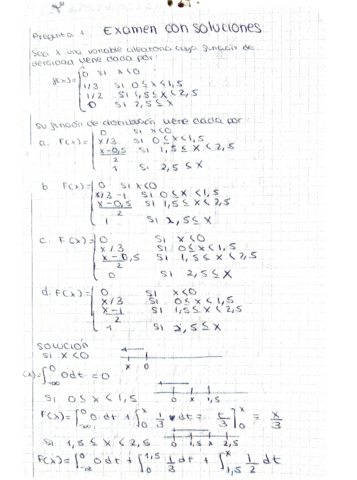 Pregunta 1 Examen con soluciones
Sea X una variable aleatoria cuya función de
densidad viene dada por:
f(x)= { 0 si x<0
1/3 si 0≤x<1,5
1/2 si 1,5≤x<2,5
0 si 2,5≤x
Su función de distribución viene dada por:
a. F(x)= { 0 si x<0
x/3 si 0≤x<1,5
x-0,5/2 si 1,5≤x<2,5
1 si 2,5≤x
b F(x)= { 0 si x<0
x/3-1 si 0≤x<1,5
x-0,5/2 si 1,5≤x<2,5
1 si 2,5≤x
c. F(x)= { 0 si x<0
x/3 si 0≤x<1,5
x-0,5/2 si 1,5≤x<2,5
0 si 2,5≤x
d. F(x)= { 0 si x<0
x/3 si 0≤x<1,5
x-1/2 si 1,5≤x<2,5
1 si 2,5≤x
solución
si x<0
x 0
(x)=∫-∞^0 0dt=0
si 0≤x<1,5
0 x 1,5
F(x)=∫-∞^0 0 dt + ∫0^x 1/3 dt= t/3]0^x = x/3
si 1,5≤x<2,5
0 1,5 x 2,5
F(x)=∫-∞^0 0 dt + ∫0^1,5 1/3 dt + ∫1,5^x 1/2 dt